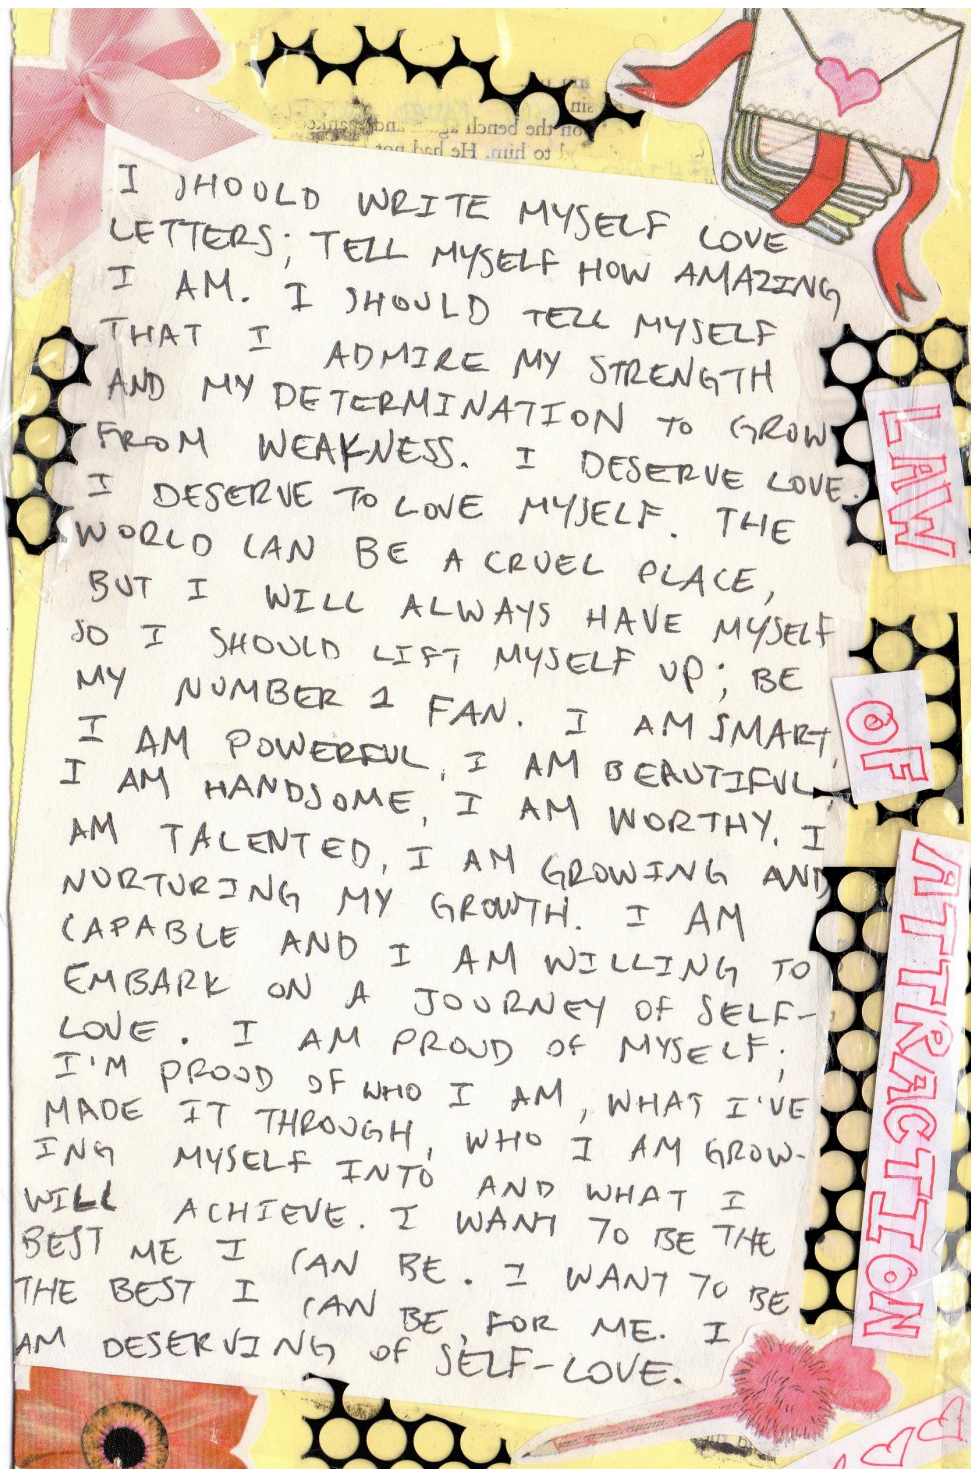 on the bench ag and
to him. He had not
I SHOULD WRITE MYSELF LOVE
LETTERS; TELL MYSELF HOW AMAZING
I AM. I SHOULD TELL MYSELF
THAT I ADMIRE MY STRENGTH
AND MY DETERMINATION TO GROW
FROM WEAKNESS. I DESERVE LOVE.
I DESERVE TO LOVE MYSELF. THE
WORLD CAN BE A CRUEL PLACE,
BUT I WILL ALWAYS HAVE MYSELF
SO I SHOULD LIFT MYSELF UP; BE
MY NUMBER 1 FAN. I AM SMART,
I AM POWERFUL, I AM BEAUTIFUL,
I AM HANDSOME, I AM WORTHY, I
AM TALENTED, I AM GROWING AND
NURTURING MY GROWTH. I AM
CAPABLE AND I AM WILLING TO
EMBARK ON A JOURNEY OF SELF-
LOVE. I AM PROUD OF MYSELF;
I'M PROUD OF WHO I AM, WHAT I'VE
MADE IT THROUGH, WHO I AM GROW-
ING MYSELF INTO AND WHAT I
WILL ACHIEVE. I WANT TO BE THE
BEST ME I CAN BE. I WANT TO BE
THE BEST I CAN BE, FOR ME. I
AM DESERVING OF SELF-LOVE.
LAW
OF
ATTRACTION